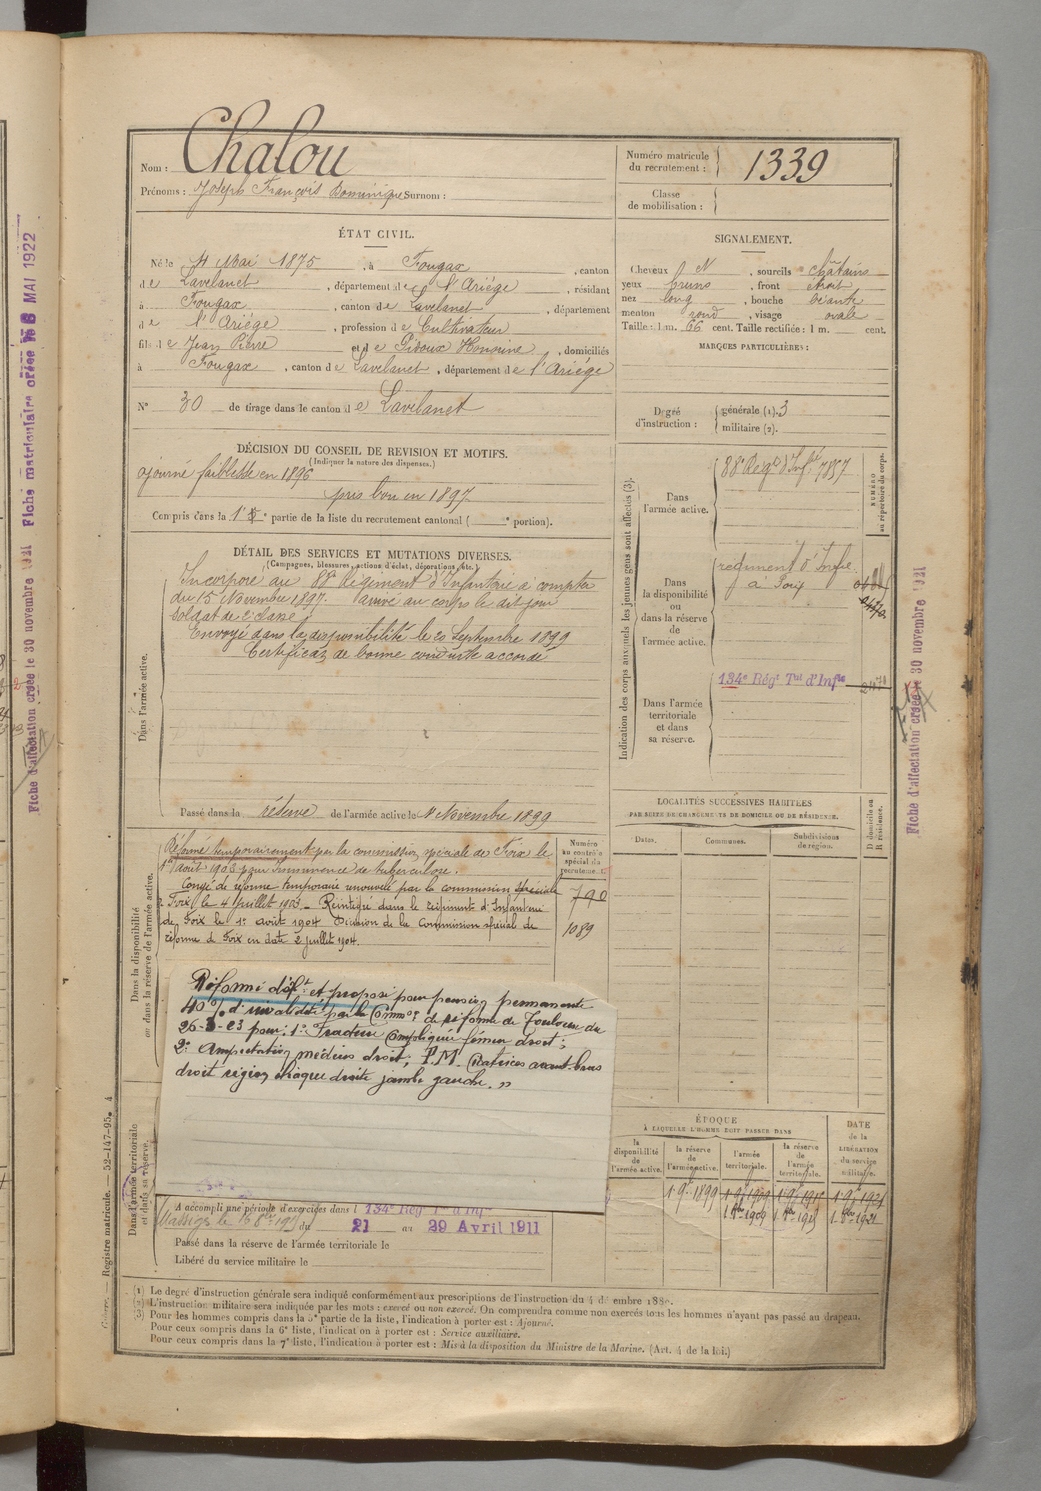 Nom : Chalou
Prénoms : Joseph François Dominique Surnom :
Numéro matricule
du recrutement : 1339
Classe
de mobilisation :
ÉTAT CIVIL.
Né le 4 Mai 1875, à Fougax, canton
de Lavelanet, département de l'Ariège, résidant
à Fougax, canton de Lavelanet, département
de l'Ariège, profession de Cultivateur
fils de Jean Pierre et de Pidoux Honorine, domiciliés
à Fougax, canton de Lavelanet, département de l'Ariége
N° 30 de tirage dans le canton de Lavelanet
SIGNALEMENT.
Cheveux N, sourcils châtains
yeux bruns, front étroit
nez long, bouche béante
menton rond, visage ovale
Taille : 1 m. 66 cent. Taille rectifiée : 1 m. cent.
MARQUES PARTICULIÈRES :
Degré
d'instruction :
générale (1). 3
militaire (2).
DÉCISION DU CONSEIL DE REVISION ET MOTIFS.
(Indiquer la nature des dispenses.)
ajourné faiblesse en 1896
pris bon en 1897
Compris dans la 1e partie de la liste du recrutement cantonal ( e portion).
DÉTAIL DES SERVICES ET MUTATIONS DIVERSES.
(Campagnes, blessures, actions d'éclat, décorations, etc.)
Dans l'armée active.
Incorporé au 88e Régiment d'Infanterie à compter
du 15 Novembre 1897. arrivé au corps le dit jour
Soldat de 2e classe
Envoyé dans la disponibilité le 20 Septembre 1899
Certificat de bonne conduite accordé
Passé dans la réserve de l'armée active le 1 Novembre 1899
Indication des corps auxquels les jeunes gens sont affectés (3).
NUMÉRO
au répertoire du corps.
Dans
l'armée active.
88e Régt d'Infie 7157
Dans
la disponibilité
ou
dans la réserve
de
l'armée active.
régiment d'Infie
à Foix
Dans l'armée
territoriale
et dans
sa réserve.
134e Régt Tal d'Infie
LOCALITÉS SUCCESSIVES HABITÉES
PAR SUITE DE CHANGEMENTS DE DOMICILE OU DE RÉSIDENCE.
Dates.
Communes.
Subdivisions
de région.
D domicile ou
R résidence.
Dans la disponibilité
ou dans la réserve de l'armée active.
Numéro
au contrôle
spécial du
recrutement.
790
1089
Réformé temporairement par la commission spéciale de Foix le
1er août 1902 pour imminence de tuberculose.
Congé de réforme temporaire renouvelé par la commission spéciale
de Foix le 4 Juillet 1903. - Réintégré dans le régiment d'Infanterie
de Foix le 1er août 1904 Décision de la Commission spéciale de
réforme de Foix en date 2 juillet 1904.
Réformé déft et proposé pour pension permanente
40% d'invalidité par la Common de réforme de Toulouse du
pour : 1° Fracture Compliquée fémur droit ;
2° Amputation médius droit ; P.M. Cicatrices avant-bras
droit région iliaque droite jambe gauche. "
Dans l'armée territoriale
et dans sa réserve.
A accompli une période d'exercices dans l 134e Rég
du 21 au 29 Avril 1911
Passé dans la réserve de l'armée territoriale le
Libéré du service militaire le
ÉPOQUE
À LAQUELLE L'HOMME DOIT PASSER DANS
la
disponibilité
de
l'armée active.
la réserve
de
l'armée active.
l'armée
territoriale.
la réserve
de
l'armée
territoriale.
DATE
de la
LIBÉRATION
du service
militaire.
(1) Le degré d'instruction générale sera indiqué conformément aux prescriptions de l'instruction du 4 décembre 1889.
(2) L'instruction militaire sera indiquée par les mots : exercé ou non exercé. On comprendra comme non exercés tous les hommes n'ayant pas passé au drapeau.
(3) Pour les hommes compris dans la 5e partie de la liste, l'indication à porter est : Ajourné.
Pour ceux compris dans la 6e liste, l'indication à porter est : Service auxiliaire.
Pour ceux compris dans la 7e liste, l'indication à porter est : Mis à la disposition du Ministre de la Marine. (Art. 4 de la loi.)
Guerre. — Registre matricule. — 52-147-95.
Fiche d'affectation créée le 30 novembre 1921
Fiche matriculaire créée le MAI 1922
Fiche d'affectation créée le 30 novembre 1921